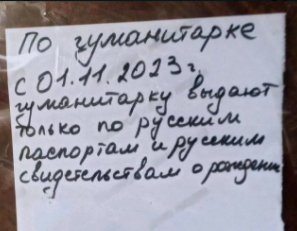 По гуманитарке
с 01.11.2023г.
гуманитарку выдают
только по русским
паспортам и русским
свидетельствам о рождении